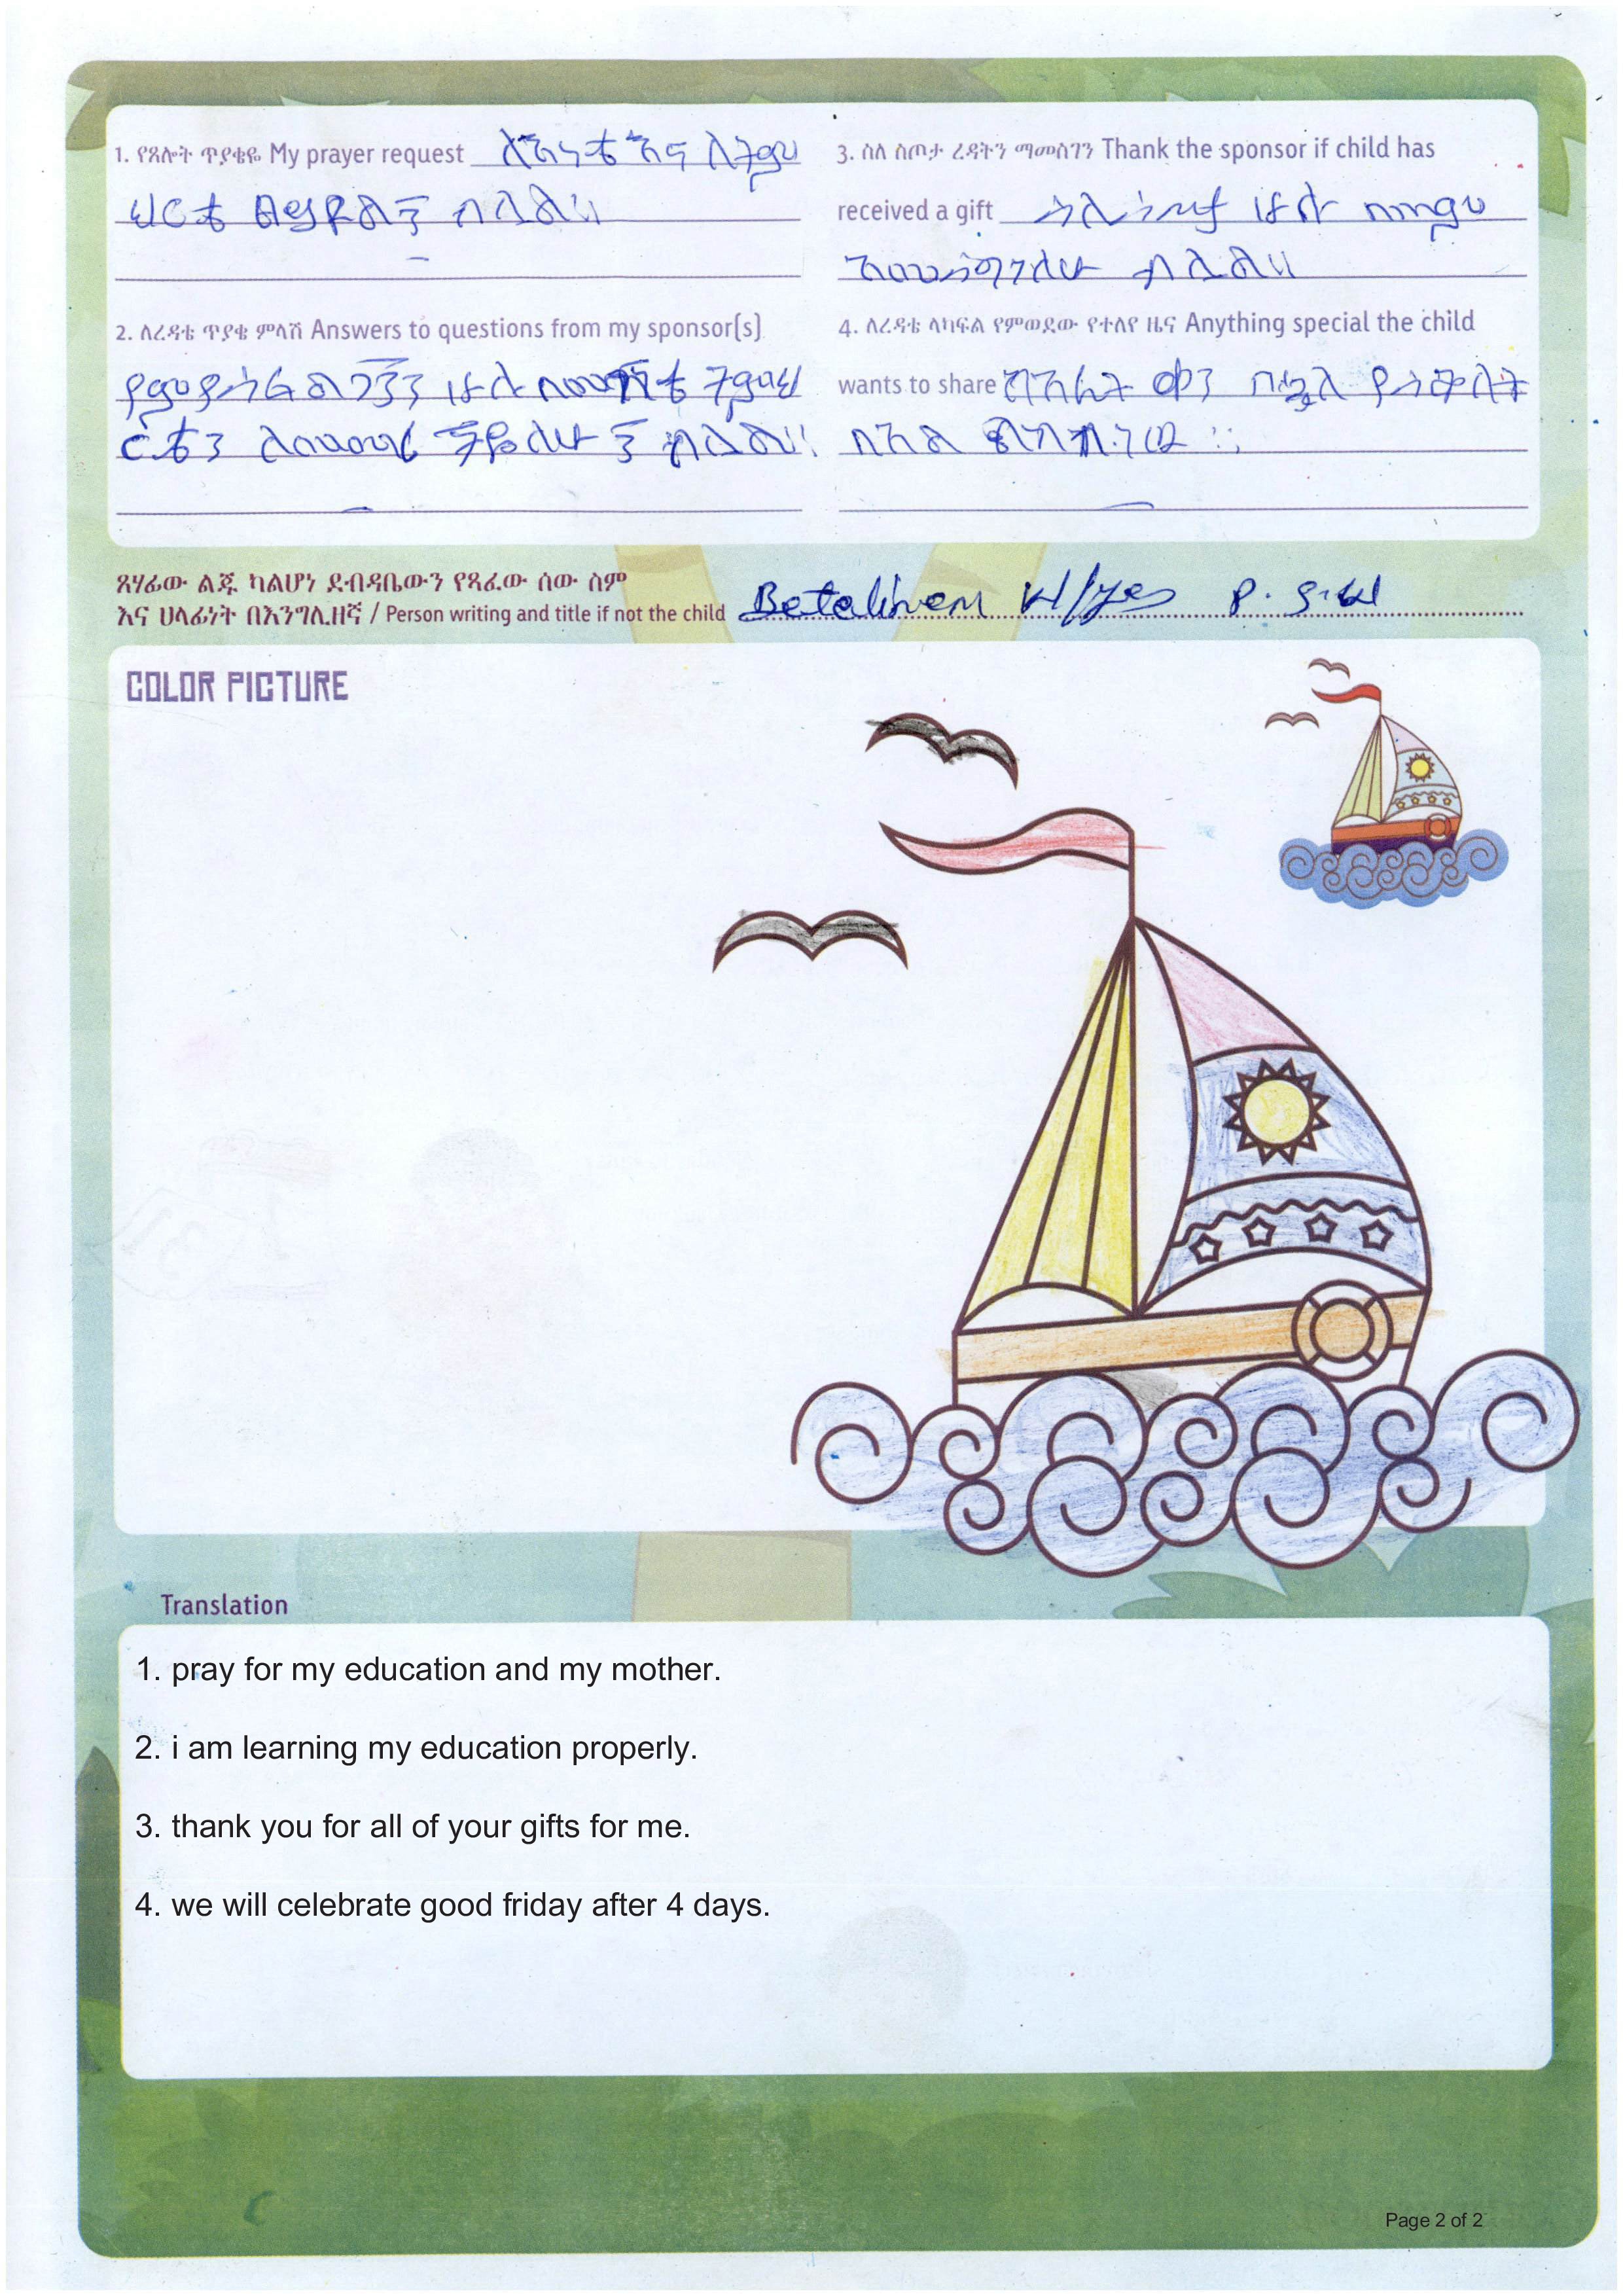 1. የጸሎት ጥያቄዬ My prayer request ለእናቴ እና ለትምህ
ህርቴ ብላል።
2. ለረዳቴ ጥያቄ ምላሽ Answers to questions from my sponsor(s)
ሁሉ ትምህ
ርቴን ብላል።
3. ስለ ስጦታ ረዳትን ማመስገን Thank the sponsor if child has
received a gift ሁሉ በጣም
አመሰግናለሁ ብላል።
4. ለረዳቴ ላካፍል የምወደው የተለየ ዜና Anything special the child
wants to share ቀን በኋላ የስቅለት
በአል
ጸሃፊው ልጁ ካልሆነ ደብዳቤውን የጻፈው ሰው ስም
እና ሀላፊነት በእንግሊዘኛ / Person writing and title if not the child Betelihem W/yes P.
COLOR PICTURE
Translation
1. pray for my education and my mother.
2. i am learning my education properly.
3. thank you for all of your gifts for me.
4. we will celebrate good friday after 4 days.
Page 2 of 2